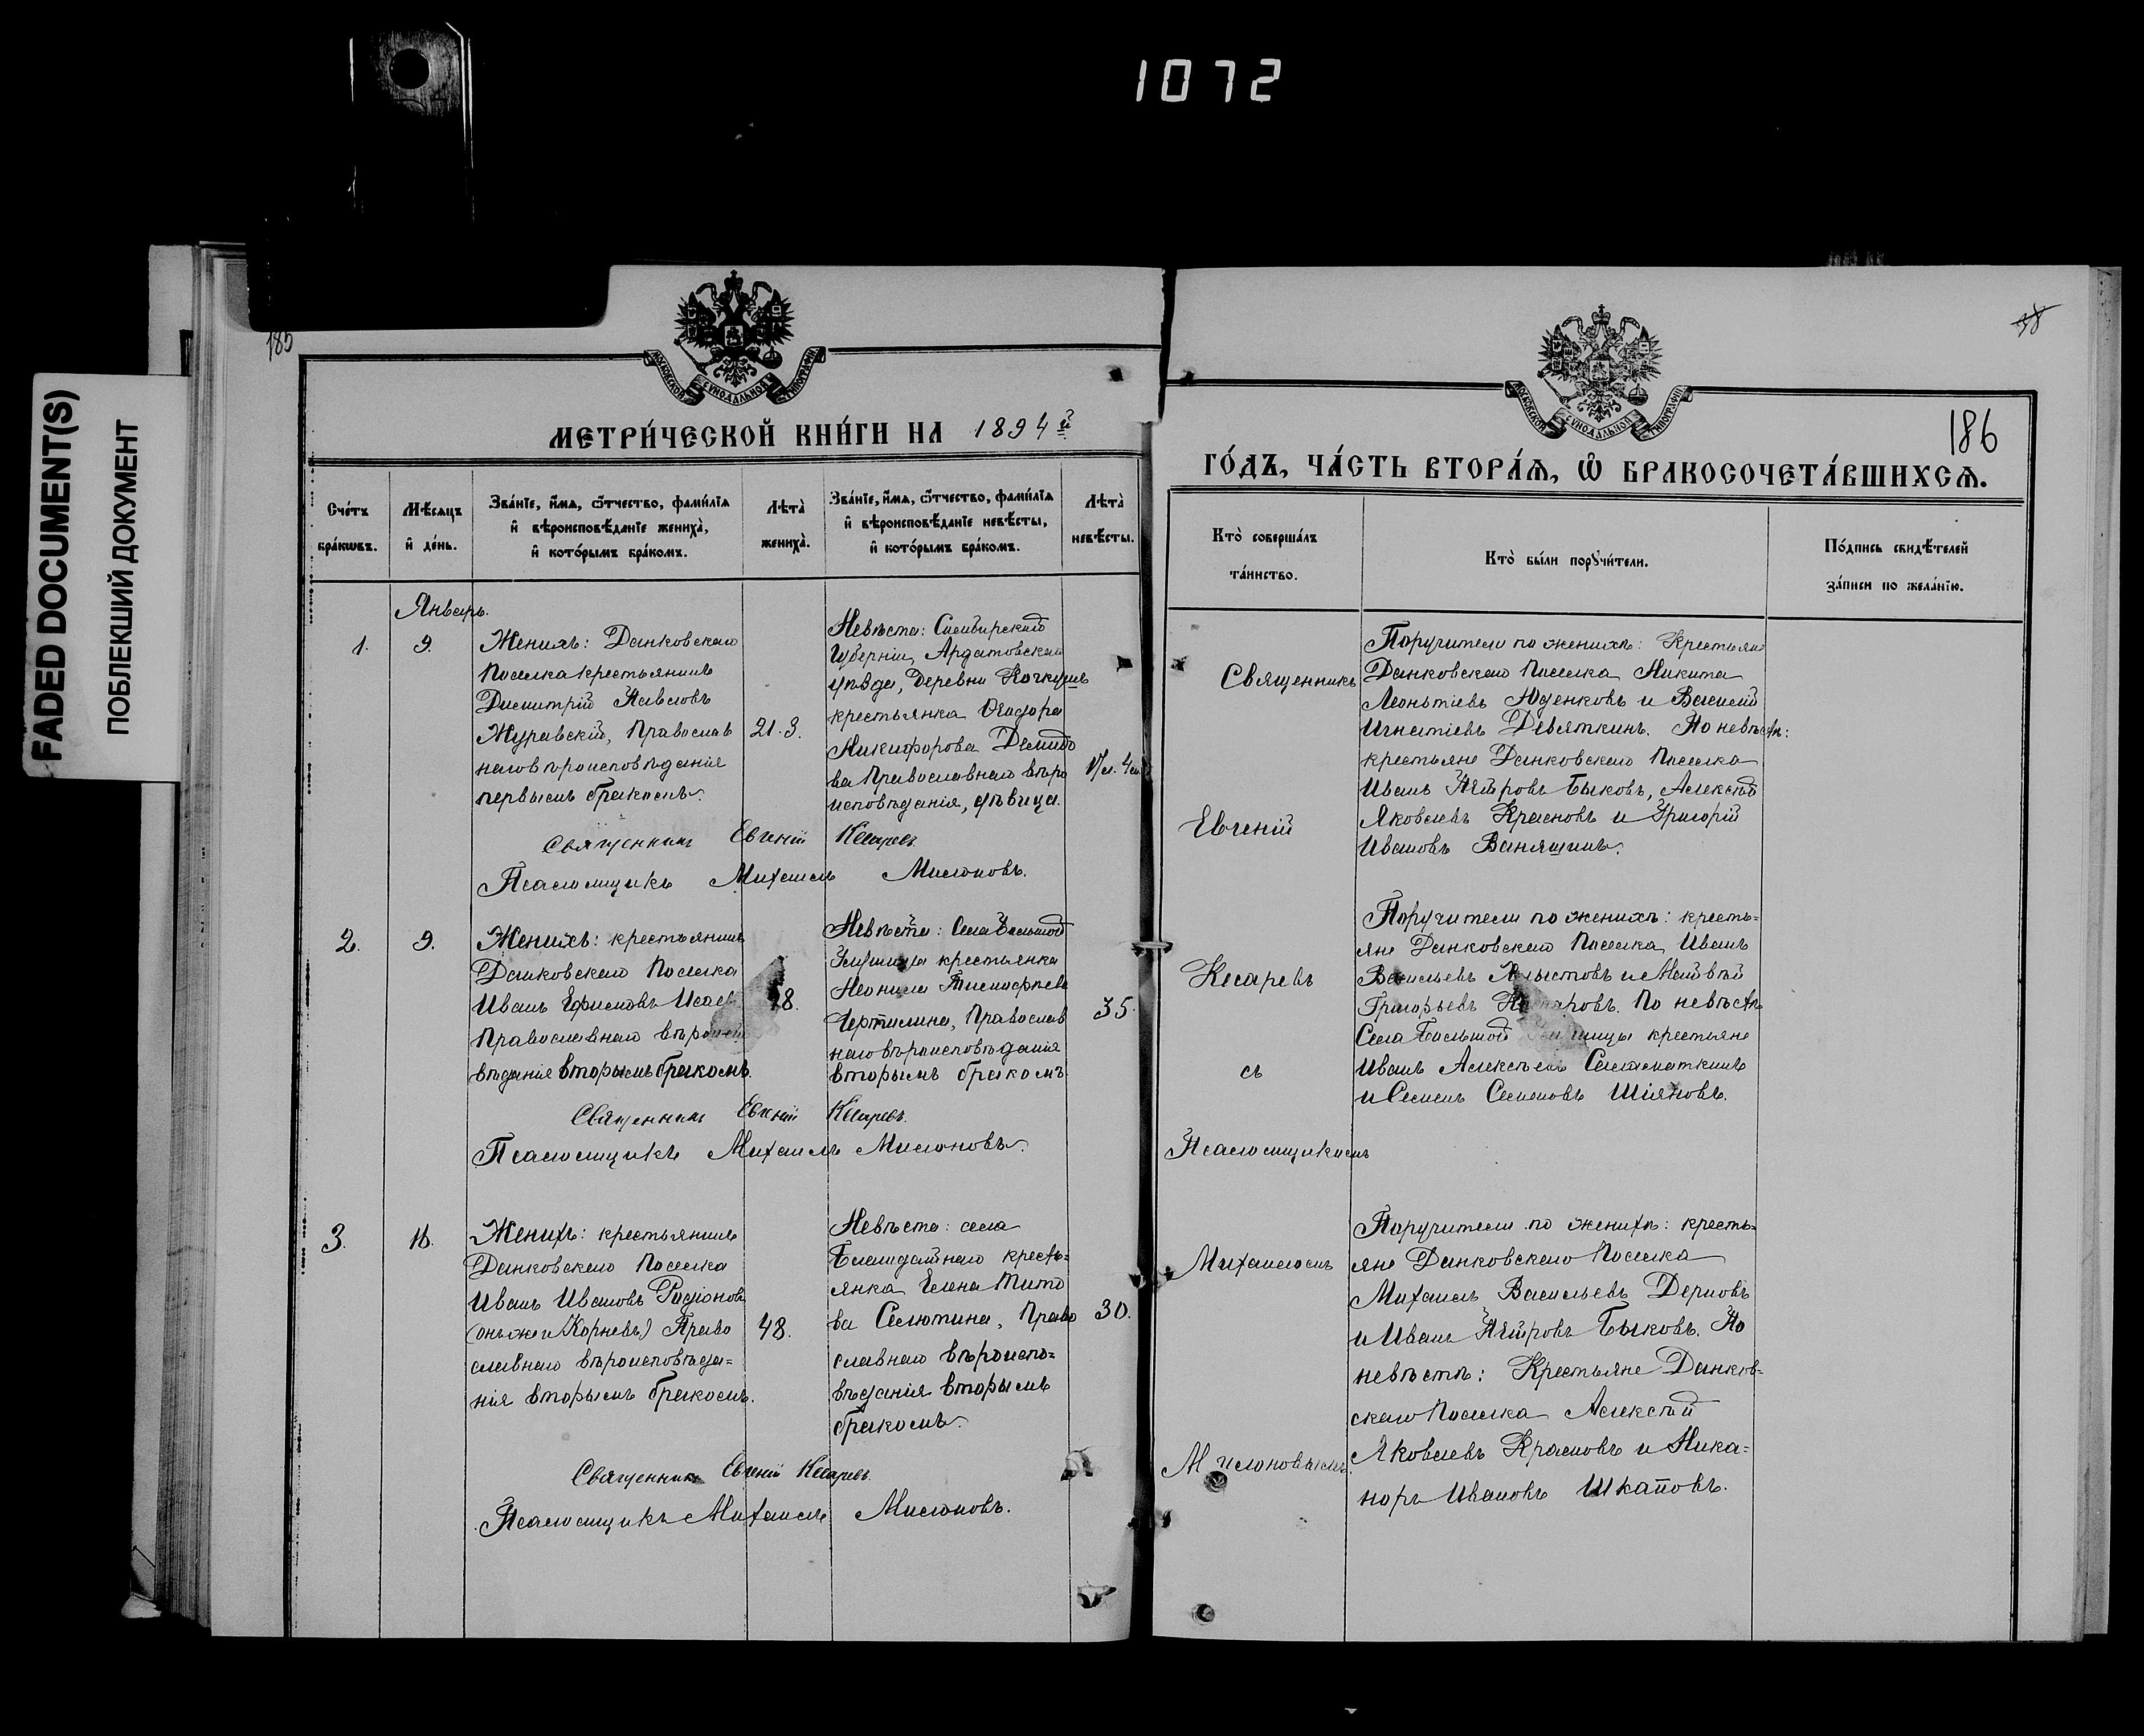 1072
FADED DOCUMENT(S)
ПОБЛЕКШИЙ ДОКУМЕНТ
185
МОСКОВСКОЙ СУНОДАЛЬНОЙ ТИПОГРАФІИ
МЕТРИ́ЧЕСКОЙ КНИ́ГИ НА 1894й
Сче́тъ бра́кѡвъ.
Мѣ́сяцъ и҆ де́нь.
Зва́нїе, и҆́мѧ, ѻ҆́тчество, фами́лїѧ
и҆ вѣроисповѣ́данїе жениха̀,
и҆ кото́рымъ бра́комъ.
Лѣта̀ жениха̀.
Зва́нїе, и҆́мѧ, ѻ҆́тчество, фами́лїѧ
и҆ вѣроисповѣ́данїе невѣ́сты,
и҆ кото́рымъ бра́комъ.
Лѣта̀ невѣ́сты.
Январь.
1.
9.
Женихъ: Данковскаго
Поселка крестьянинъ
Димитрій Павловъ
Журавскій, Православ
наго вѣроисповѣданія
первымъ бракомъ.
21.
Невѣста: Симбирской
Губерніи, Ардатовскаго
уѣзда, Деревни
крестьянка Ѳеодора
Никифорова Демидо
ва Православнаго вѣро
исповѣданія, дѣвица.
Священникъ Евгеній Кесаревъ
Псаломщикъ Михаилъ Милоновъ.
2.
9.
Женихъ: крестьянинъ
Данковскаго Поселка
Иванъ Ефимовъ
Православнаго
вѣданія вторымъ бракомъ.
Невѣста: Села Большой
крестьянка
Неонила Тимофѣева
Православ
наго вѣроисповѣданія
вторымъ бракомъ
35.
Священникъ Евгеній Кесаревъ.
Псаломщикъ Михаилъ Милоновъ.
3.
16.
Женихъ: крестьянинъ
Данковскаго Поселка
Иванъ Ивановъ Радіоновъ
(онъ же и Корневъ) Право
славнаго вѣроисповѣда=
нія вторымъ бракомъ.
48.
Невѣста: села
Благодатнаго кресть=
янка Елена Тито
ва Селютина, Право
славнаго вѣроиспо=
вѣданія вторымъ
бракомъ.
30.
Священникъ Евгеній Кесаревъ.
Псаломщикъ Михаилъ Милоновъ.
МОСКОВСКОЙ СУНОДАЛЬНОЙ ТИПОГРАФІИ
186
ГО́ДЪ, ЧА́СТЬ ВТОРА́Ѧ, Ѡ҆ БРАКОСОЧЕТА́ВШИХСѦ.
Кто̀ соверша́лъ
та́инство.
Кто̀ бы́ли порꙋчи́тели.
По́дпись свидѣ́телей
за́писи по жела́нїю.
Священникъ
Евгеній
Кесаревъ
съ
Псаломщикомъ
Михаиломъ
Милоновымъ.
Поручители по женихѣ: Крестьяне
Данковскаго Поселка Никита
Леонтіевъ Юденковъ и Василій
Игнатіевъ Девяткинъ. По невѣстѣ:
крестьяне Данковскаго Поселка
Иванъ Петровъ Быковъ, Алексѣй
Яковлевъ Красновъ и Григорій
Ивановъ Ваняшинъ.
Поручители по женихѣ: кресть=
яне Данковскаго Поселка Иванъ
Васильевъ и Матвѣй
Григорьевъ По невѣстѣ
Села Большой крестьяне
Иванъ Алексѣевъ Саламаткинъ
и Семенъ Семеновъ Шіяновъ.
Поручители по женихѣ: кресть=
яне Данковскаго Поселка
Михаилъ Васильевъ Дерновъ
и Иванъ Петровъ Быковъ. По
невѣстѣ: Крестьяне Данков=
скаго Поселка Алексѣй
Яковлевъ Красновъ и Ника=
норъ Ивановъ Шкатовъ.